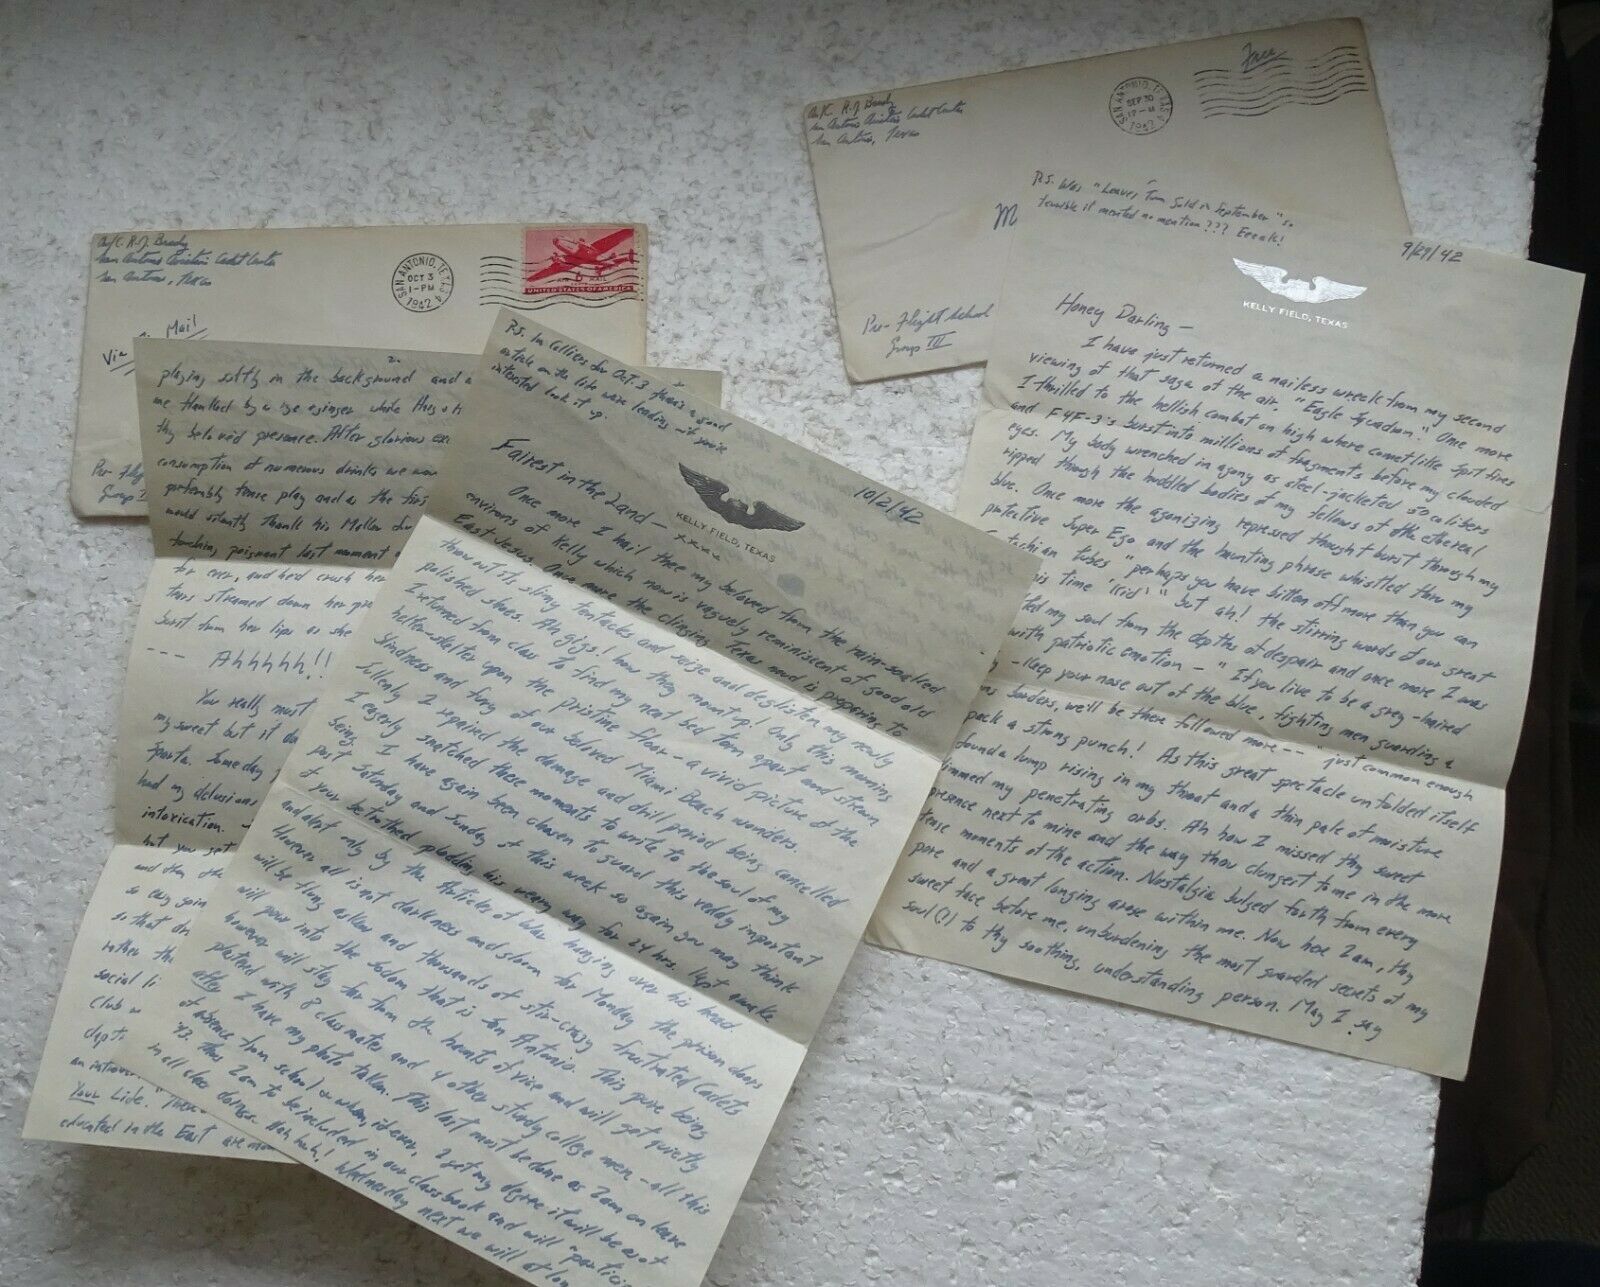 A/C. R.J. Brady
San Antonio Aviation Cadet Center
San Antonio, Texas
SAN ANTONIO, TEXAS
OCT 3
1-PM
1942
AIR MAIL
6
UNITED STATES OF AMERICA
Via Air Mail
Pre-Flight
Group
2.
playing softly in the background and a
me flanked by a rye & ginger while
thy beloved presence. After glorious
consumption of numerous drinks we
preferably tense play and as the
would silently thank his Maker
touching, poignant last moment
for ever, and he'd crush her
tears streamed down her
burst from her lips as she
--- Ahhhhh!!
You really must
my sweet but it
Sparta. Some day
had my delusions
intoxication.
but you get
and then the
so easy going
so that
rather the
social li
Club
depts
an introve
Your Life."
educated in the East are
P.S. In Colliers for Oct. 3 there's a good
article on the life we're leading - if you're
interested look it up.
10/2/42
KELLY FIELD, TEXAS
Fairest in the Land -
xxxx
Once more I hail thee my beloved from the rain-soaked
environs of Kelly which now is vaguely reminiscent of good old
East Jesus. Once more the clinging Texas mud is preparing to
throw out its slimy tentacles and seize and deglisten my newly
polished shoes. Ah gigs! how they mount up! Only this morning
I returned from class to find my neat bed torn apart and strewn
helter-skelter upon the pristine floor - a vivid picture of the
blindness and fury of our beloved Miami Beach wonders.
Sullenly I repaired the damage and drill period being cancelled
I eagerly snatched these moments to write to the soul of my
being.
I have again been chosen to guard this veddy important
post Saturday and Sunday of this week so again you may think
of your betrothed plodding his weary way for 24 hrs. kept awake
and alert only by the Articles of War hanging over his head
However all is not darkness and gloom for Monday the prison doors
will be flung asker and thousands of stir-crazy frustrated Cadets
will pour into the bedlam that is San Antonio. This pure being
however will stay far from the haunts of vice and will get quietly
plastered with 8 classmates and 4 other sturdy college men - all this
after I have my photo taken. This last must be done as I am on leave
of absence from school & when, if ever, I get my degree it will be as of
'43. Thus I am to be included in our class book and will "partici
in all class doings. Hah hah! Wednesday next we will at lon
A/C. R.J. Brady
San Antonio Aviation Cadet Center
San Antonio, Texas
SAN ANTONIO, TEXAS
SEP 30
12-M
1942
Free
M
Pre-Flight School
Group III
P.S. Was "Leaves Turn Gold in September" so
terrible it merited no mention??? Eeeak!
9/29/42
KELLY FIELD, TEXAS
Honey Darling -
I have just returned a nailess wreck from my second
viewing of that saga of the air. "Eagle Squadron." Once more
I thrilled to the hellish combat on high where cometlike Spitfires
and F4F-3's burst into millions of fragments before my clouded
eyes. My body wrenched in agony as steel-jacketed 50 calibers
ripped through the huddled bodies of my fellows of the ethereal
blue. Once more the agonizing repressed thought burst through my
protective Super Ego and the haunting phrase whistled thru my
stachian tubes "perhaps you have bitten off more than you can
this time 'Kid'" but ah! the stirring words of our great
ted my soul from the depths of despair and once more I was
with patriotic emotion - "If you live to be a grey-haired
- keep your nose out of the blue, fighting men guarding a
ns borders, we'll be there followed more -- "just common enough
pack a strong punch! As this great spectacle unfolded itself
found a lump rising in my throat and a thin pale of moisture
dimmed my penetrating orbs. Ah how I missed thy sweet
presence next to mine and the way thou clungest to me in the more
tense moments of the action. Nostalgia bulged forth from every
pore and a great longing arose within me. Now here I am, thy
sweet face before me, unburdening the most guarded secrets of my
soul(?) to thy soothing, understanding person. May I say